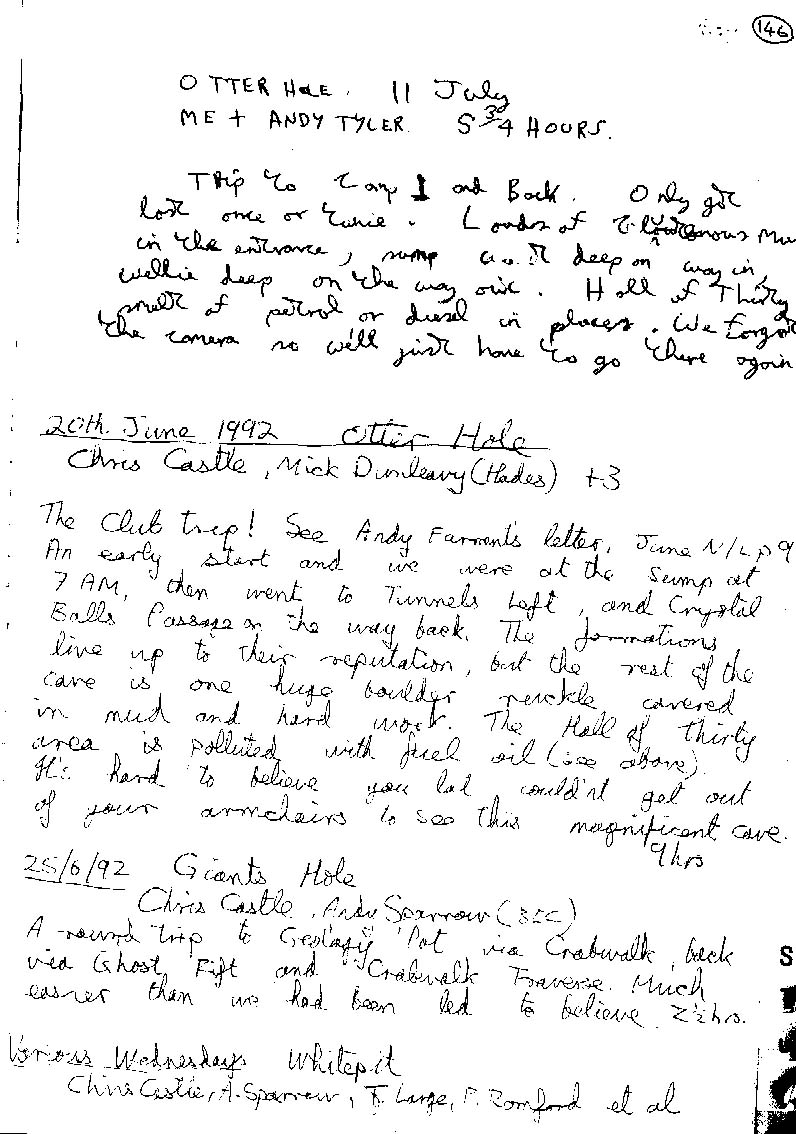 146
OTTER HOLE. 11 July
ME + ANDY TYLER. 5 3/4 HOURS.
Trip to Camp 1 and Back. Only got
lost once or twice. Loads of Mu
in the entrance, sump waist deep on way in,
wellie deep on the way out. Hall of Thirty
smelt of petrol or diesel in places. We forgot
the camera so we'll just have to go there again
20th. June 1992 Otter Hole
Chris Castle, Mick Dunleavy (Hades) +3
The Club trip! See Andy Farrant's letter, June N/L p9
An early start and we were at the Sump at
7 AM, then went to Tunnels Left, and Crystal
Balls Passage on the way back. The formations
live up to their reputation, but the rest of the
cave is one huge boulder ruckle covered
in mud and hard work. The Hall of Thirty
area is polluted with fuel oil (see above).
It's hard to believe you lot couldn't get out
of your armchairs to see this magnificent cave.
9hrs
25/6/92 Giants Hole
Chris Castle, Andy Sparrow (BEC)
A round trip to Geology Pot via Crabwalk, back
via Ghost Rift and Crabwalk Traverse. Much
easier than we had been led to believe. 2½hrs.
Various Wednesdays Whitepit
Chris Castle, A. Sparrow, T. Large, P. Romford et al
S